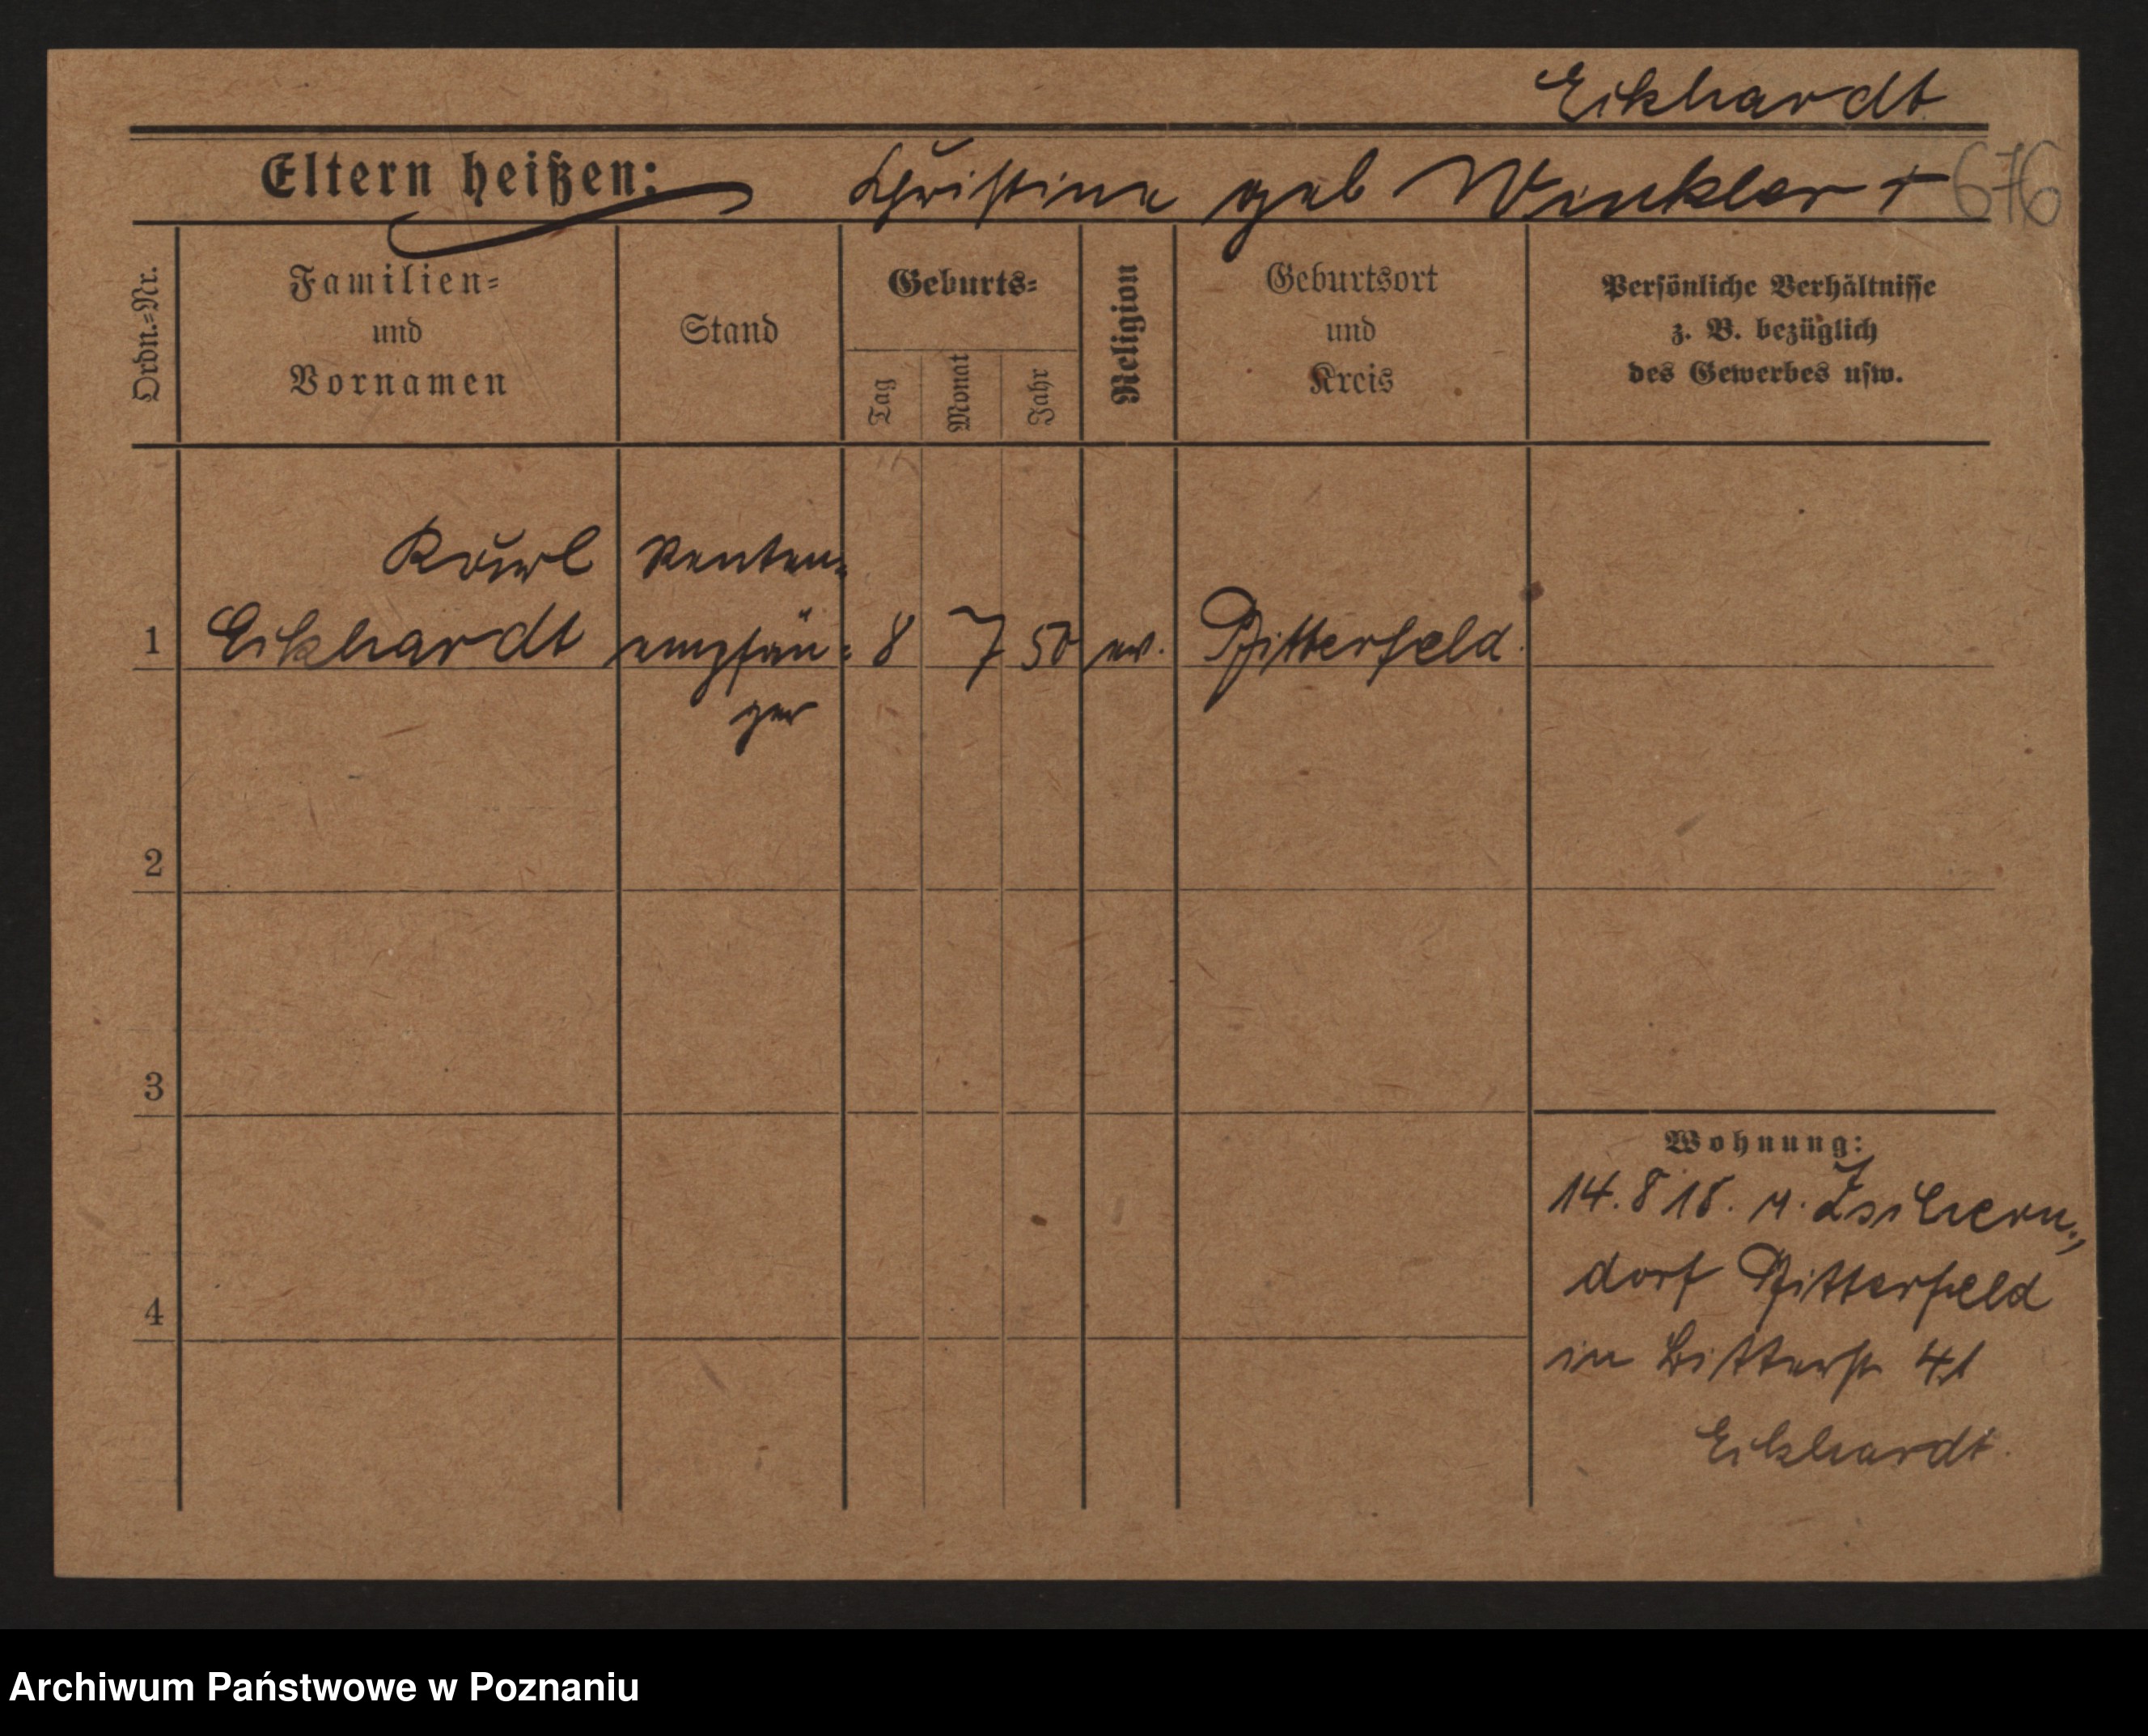 Eikhardt
Eltern heißen: Christine geb Winkler +
676
Ordn.=Nr.
Familien=
und
Vornamen
Stand
Geburts=
Tag
Monat
Jahr
Religion
Geburtsort
und
Kreis
Persönliche Verhältnisse
z. B. bezüglich
des Gewerbes usw.
Karl Renten=
1 Eikhardt empfän= 8 7 50 ev. Bitterfeld.
ger
2
3
4
Wohnung:
14. 8 18. n.
dorf Bitterfeld
in 41
Eikhardt.
Archiwum Państwowe w Poznaniu